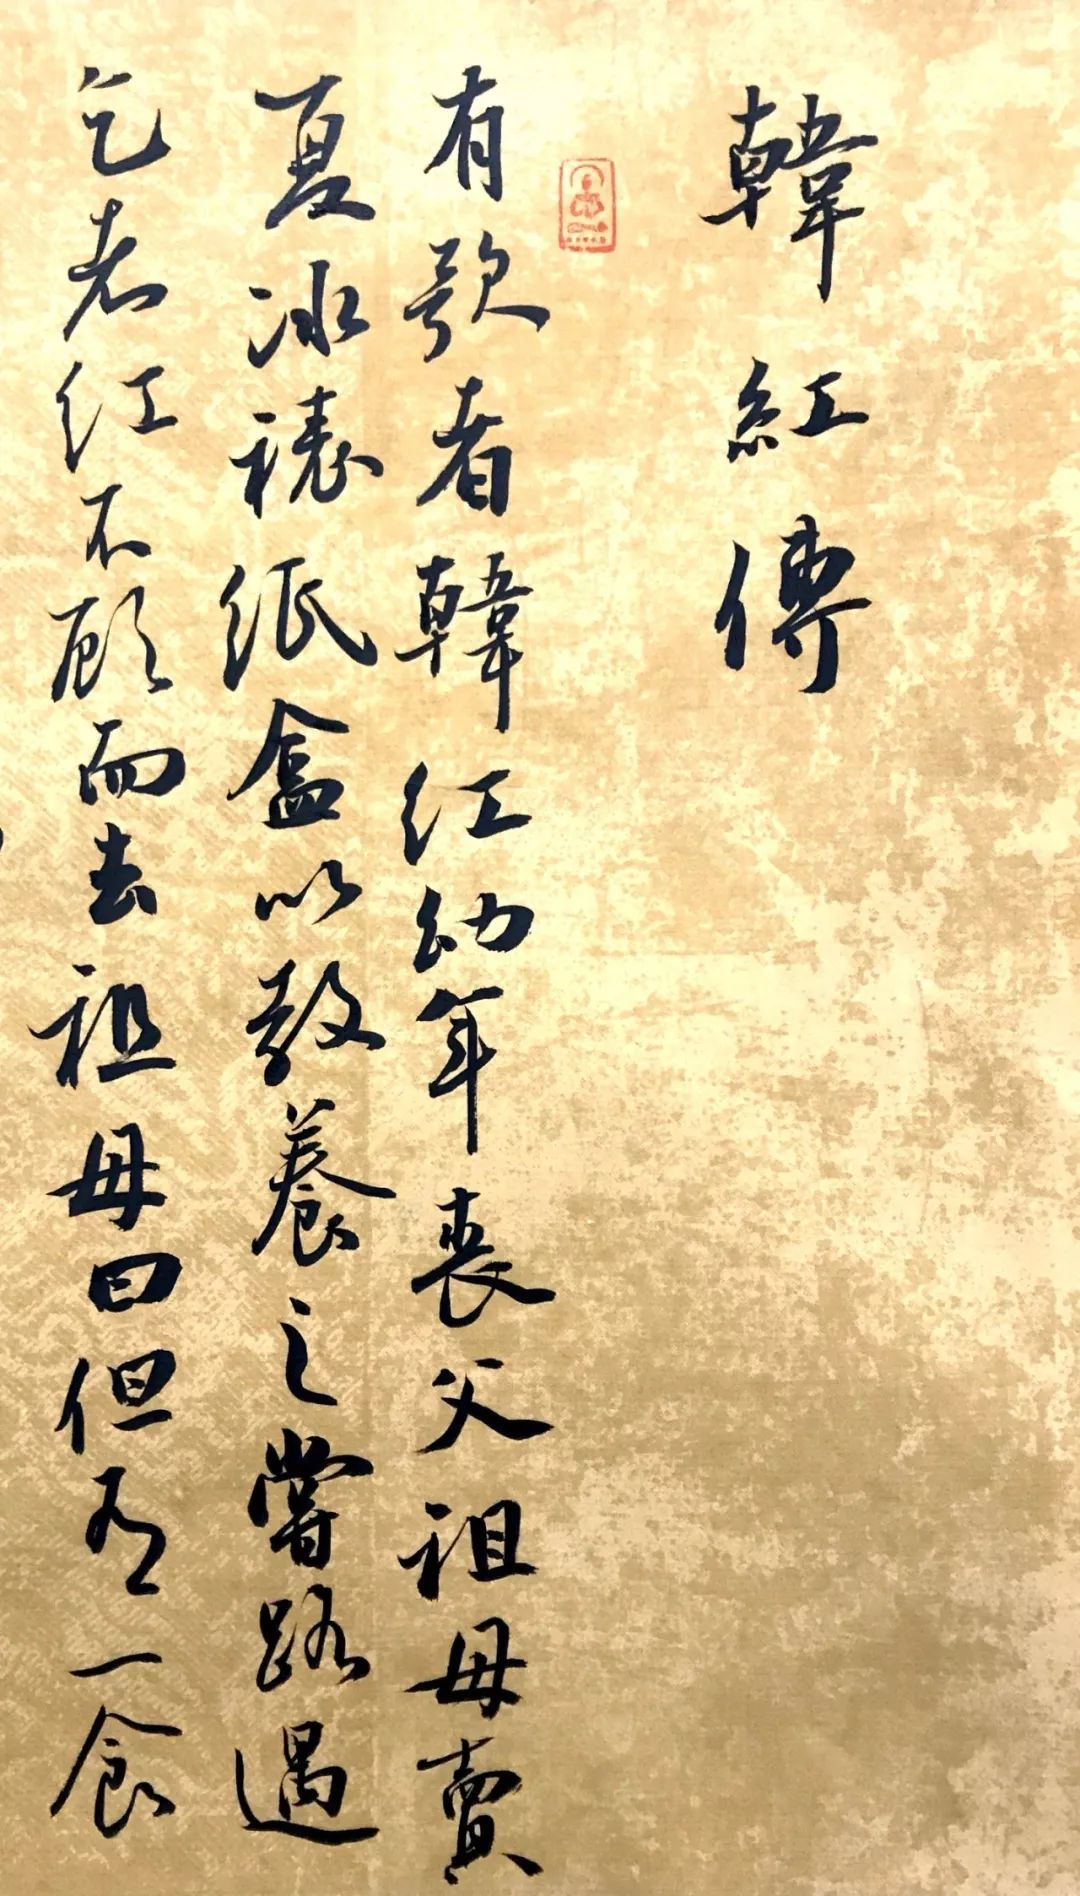 韓紅傳
有歌者韓红幼年喪父祖母賣
夏冰裱纸盒以教養之嘗路遇
乞者红不顾而去祖母曰但有一食